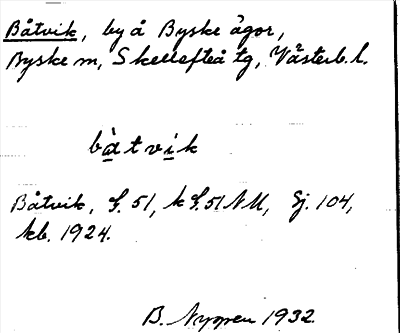 Båtvik, by å Byske ägor,
Byske sn, Skellefteå tg, Västerb. l.
båtvik
Båtvik, S. 51, k S. 51 NU, Ej. 104,
kb. 1924.
B. 1932.